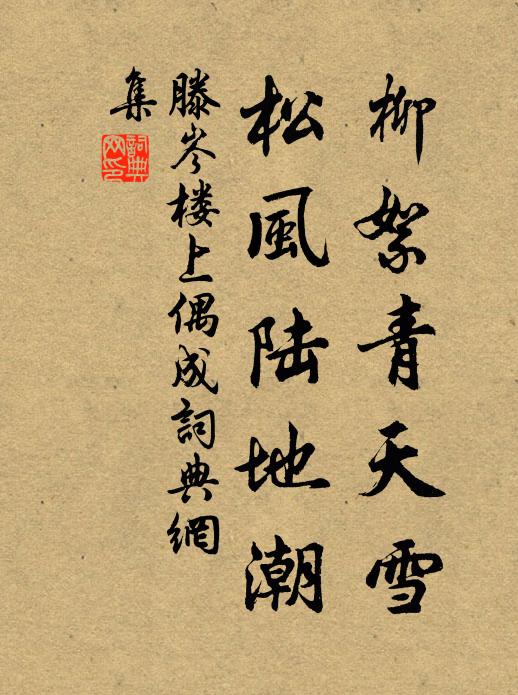 柳絮青天雪
松風陆地潮
滕岑楼上偶成詞典網
集
詞典
网印